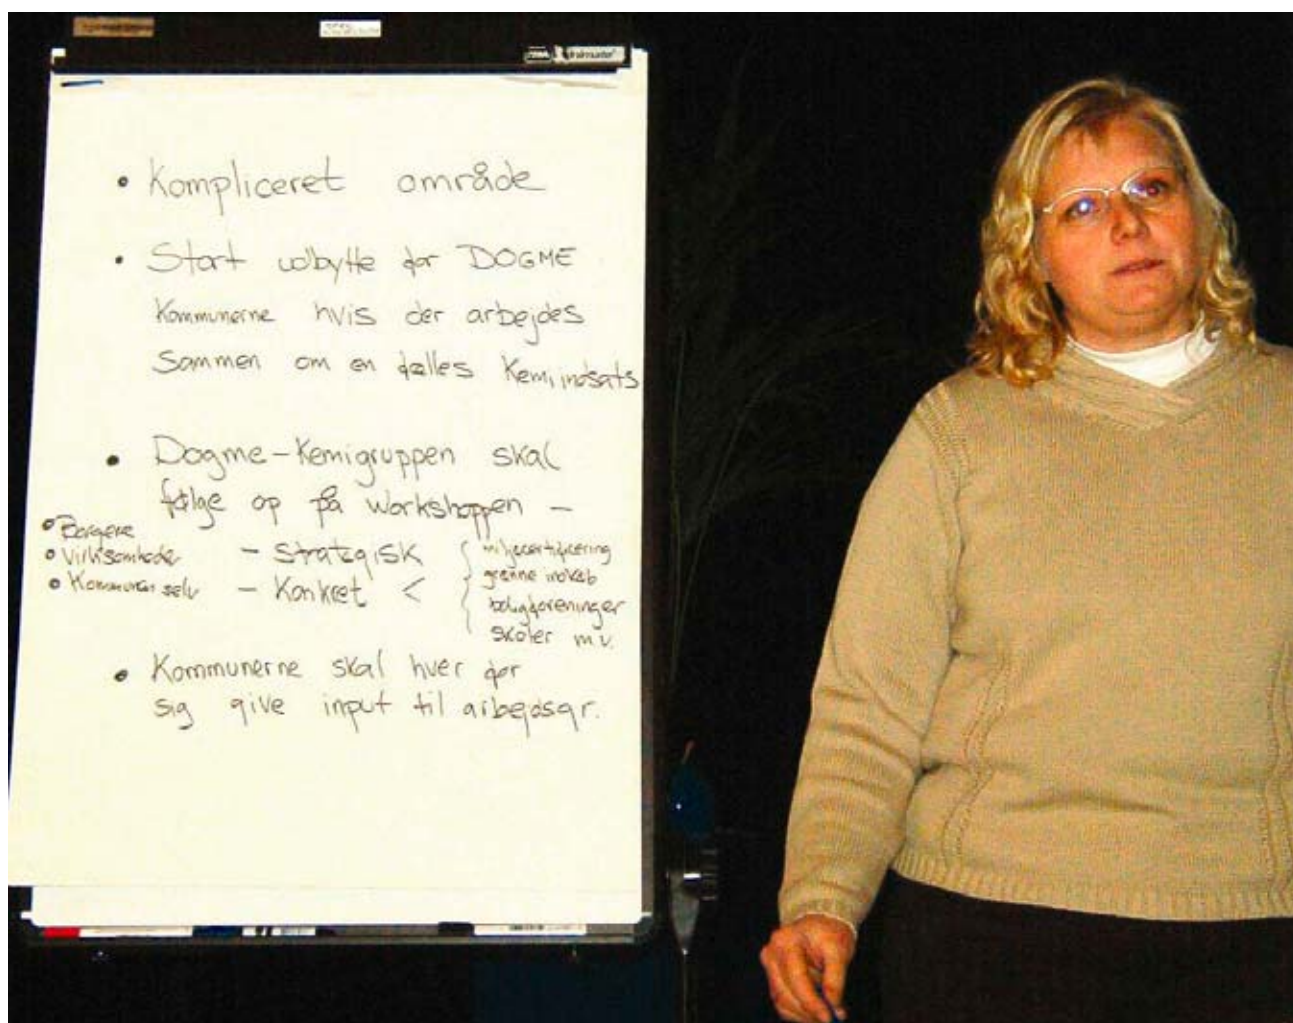 • Kompliceret område
• Stort udbytte for DOGME
Kommunerne hvis der arbejdes
sammen om en fælles Kemiindsats
• Dogme-Kemigruppen skal
følge op på workshoppen -
• Borgere
• Virksomheder
• Kommunen selv
- Strategisk
- Konkret <
miljøcertificering
grønne indkøb
boligforeninger
skoler m.v.
• Kommunerne skal hver for
sig give input til arbejdsgr.